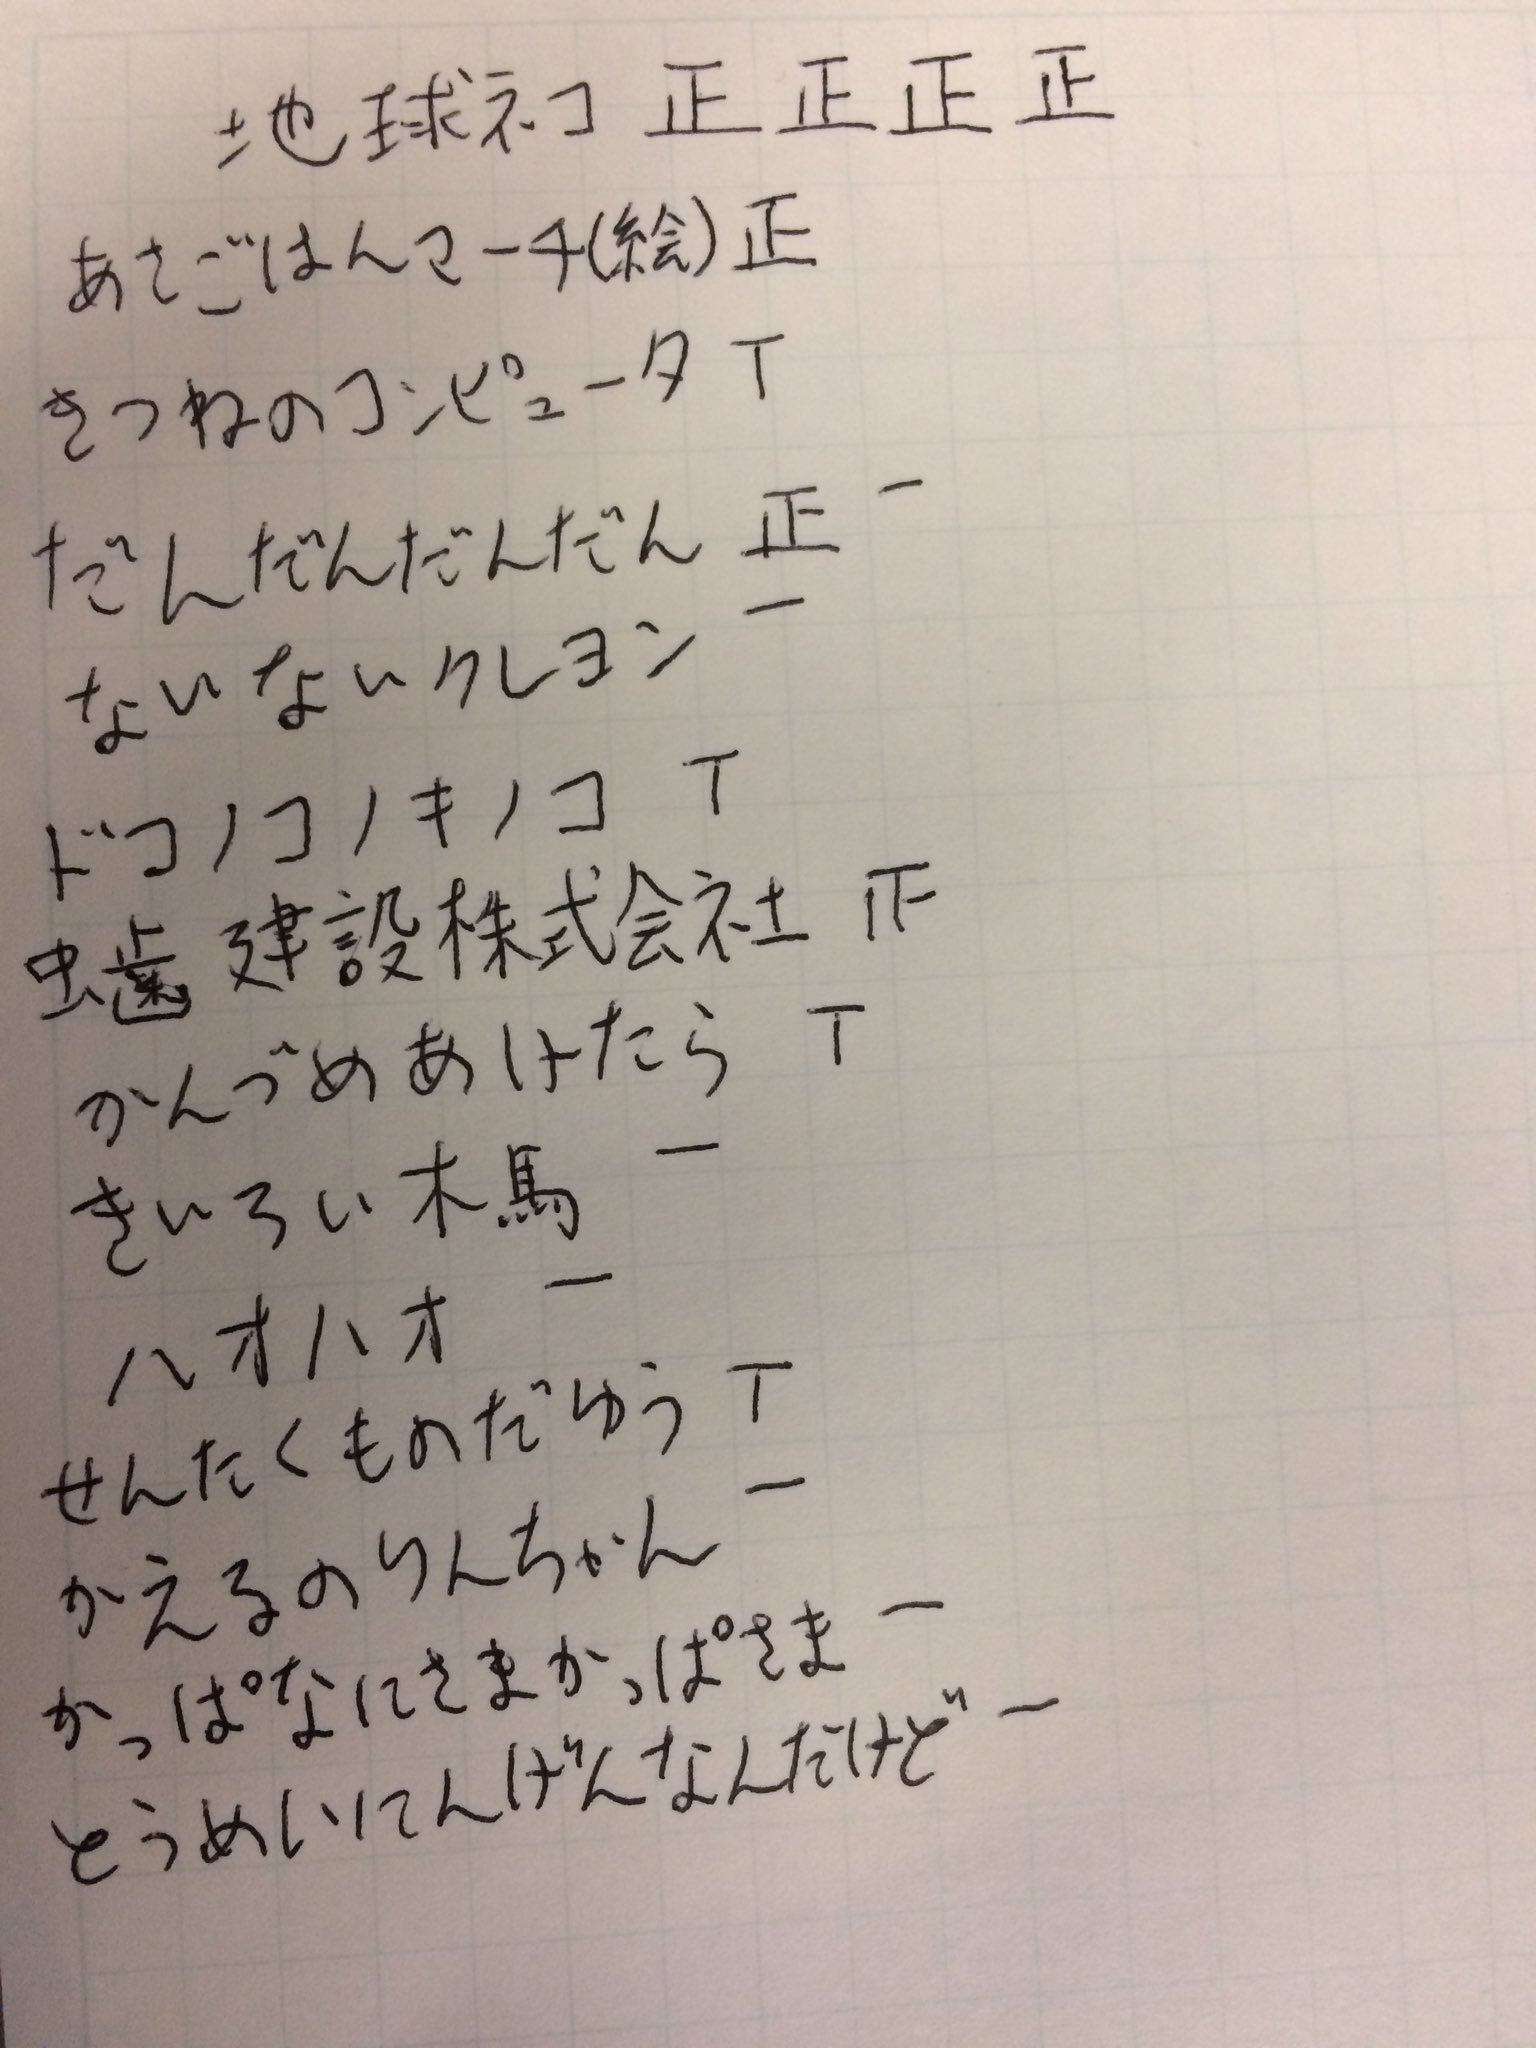 地球ネコ 正 正 正 正
あさごはんマーチ(絵) 正
きつねのコンピュータ T
だんだんだんだん 正 一
ないないクレヨン 一
ドコノコノキノコ T
虫歯建設株式会社 正
かんづめあけたら T
きいろい木馬 一
ハオハオ 一
せんたくものだゆう T
かえるのりんちゃん 一
かっぱなにさまかっぱさま 一
とうめいにんげんなんだけど 一